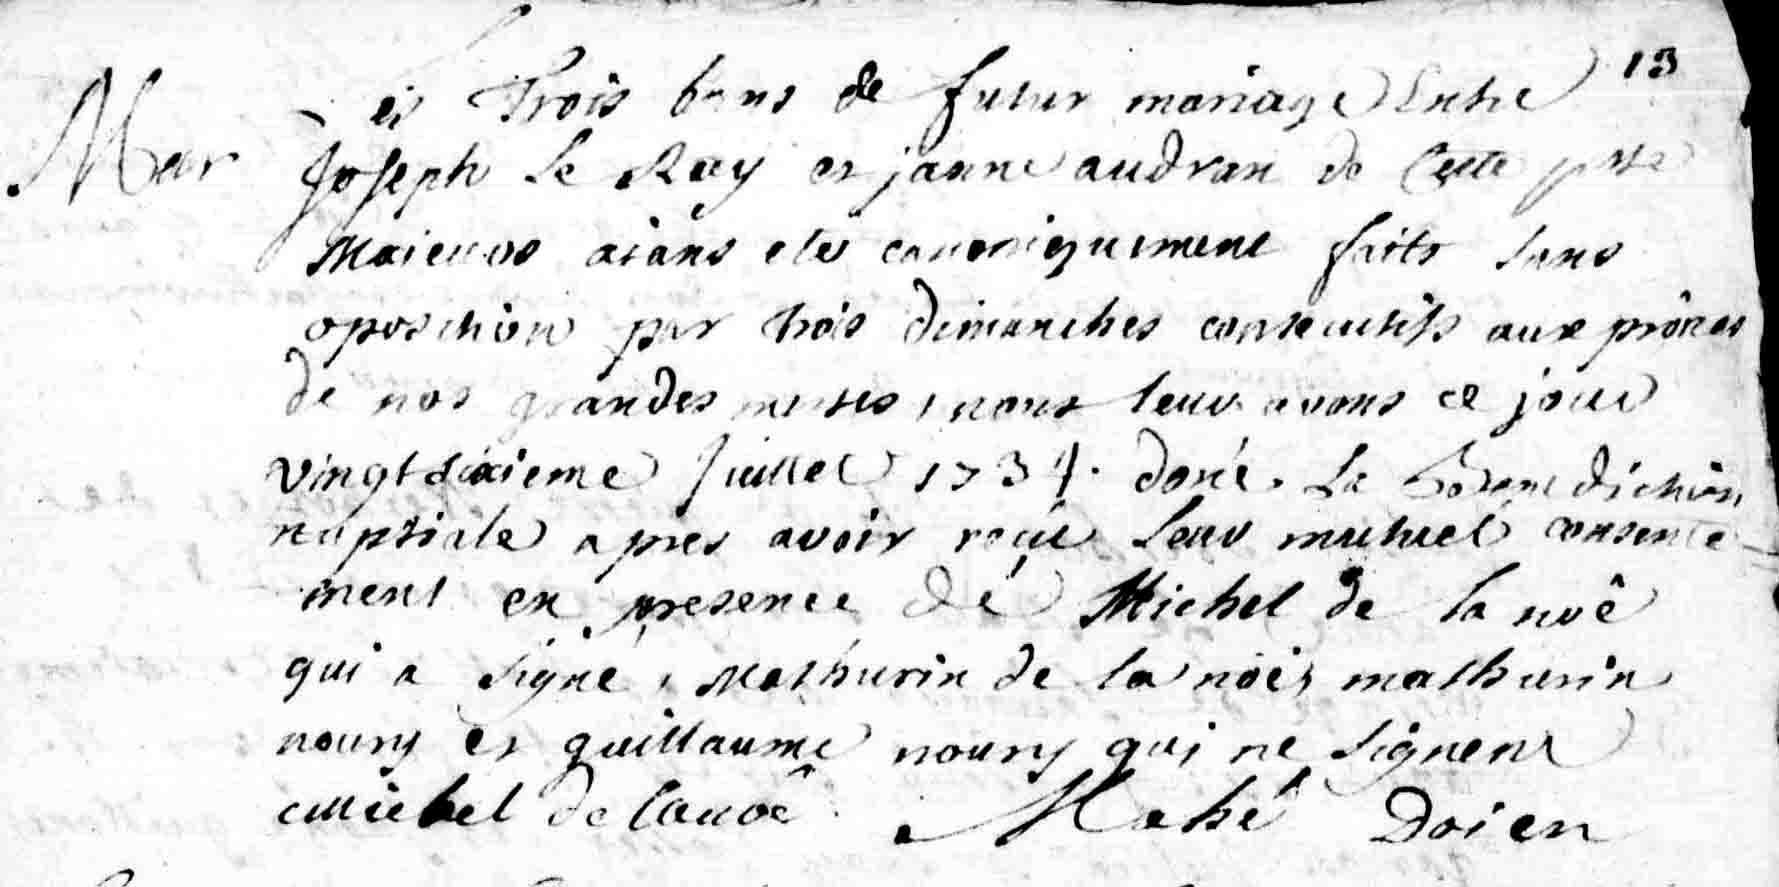 13
Mar
Les Trois bans de futur mariage Entre
Joseph Le Ray et janne audran de Cette psse
Majeurs aians etes canoniquement faits sans
oposition par trois dimanches consecutifs aux prônes
de nos grandes messes, nous leur avons ce jour
vingt sixieme Juillet 1734. doné. La Benediction
nuptiale apres avoir reçu leur mutuel consente
ment en presence de Michel de la noê
qui a signé, Mathurin de la noë, mathurin
noury et guillaume noury qui ne signent
Michel de lanoê Mahé Doien